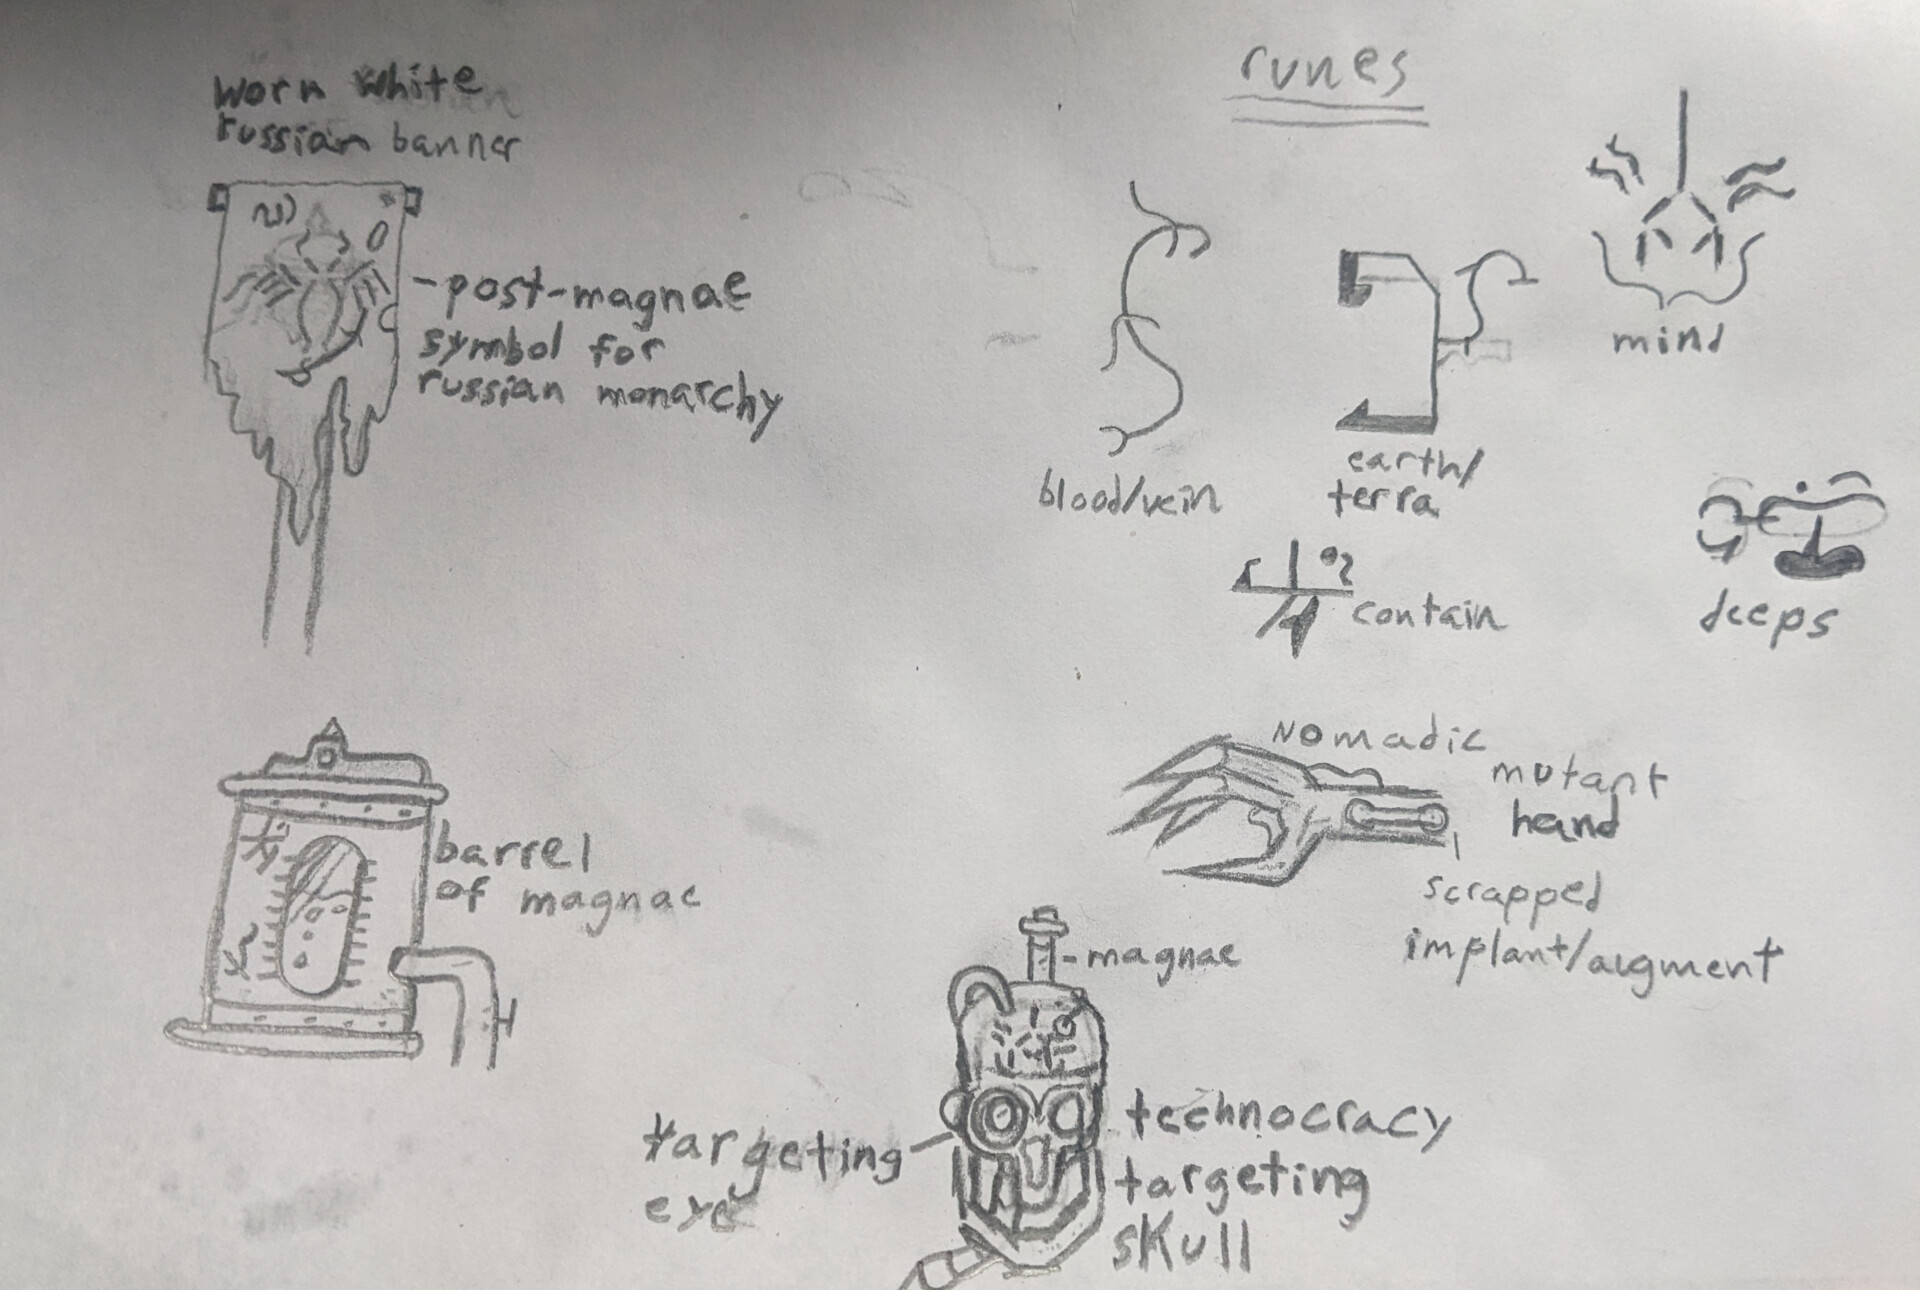 worn white
russian banner
-post-magnae
symbol for
russian monarchy
runes
blood/vein
earth/
terra
mind
contain
deeps
barrel
of magnae
nomadic
mutant
hand
scrapped
implant/augment
-magnae
targeting
eye
technocracy
targeting
skull